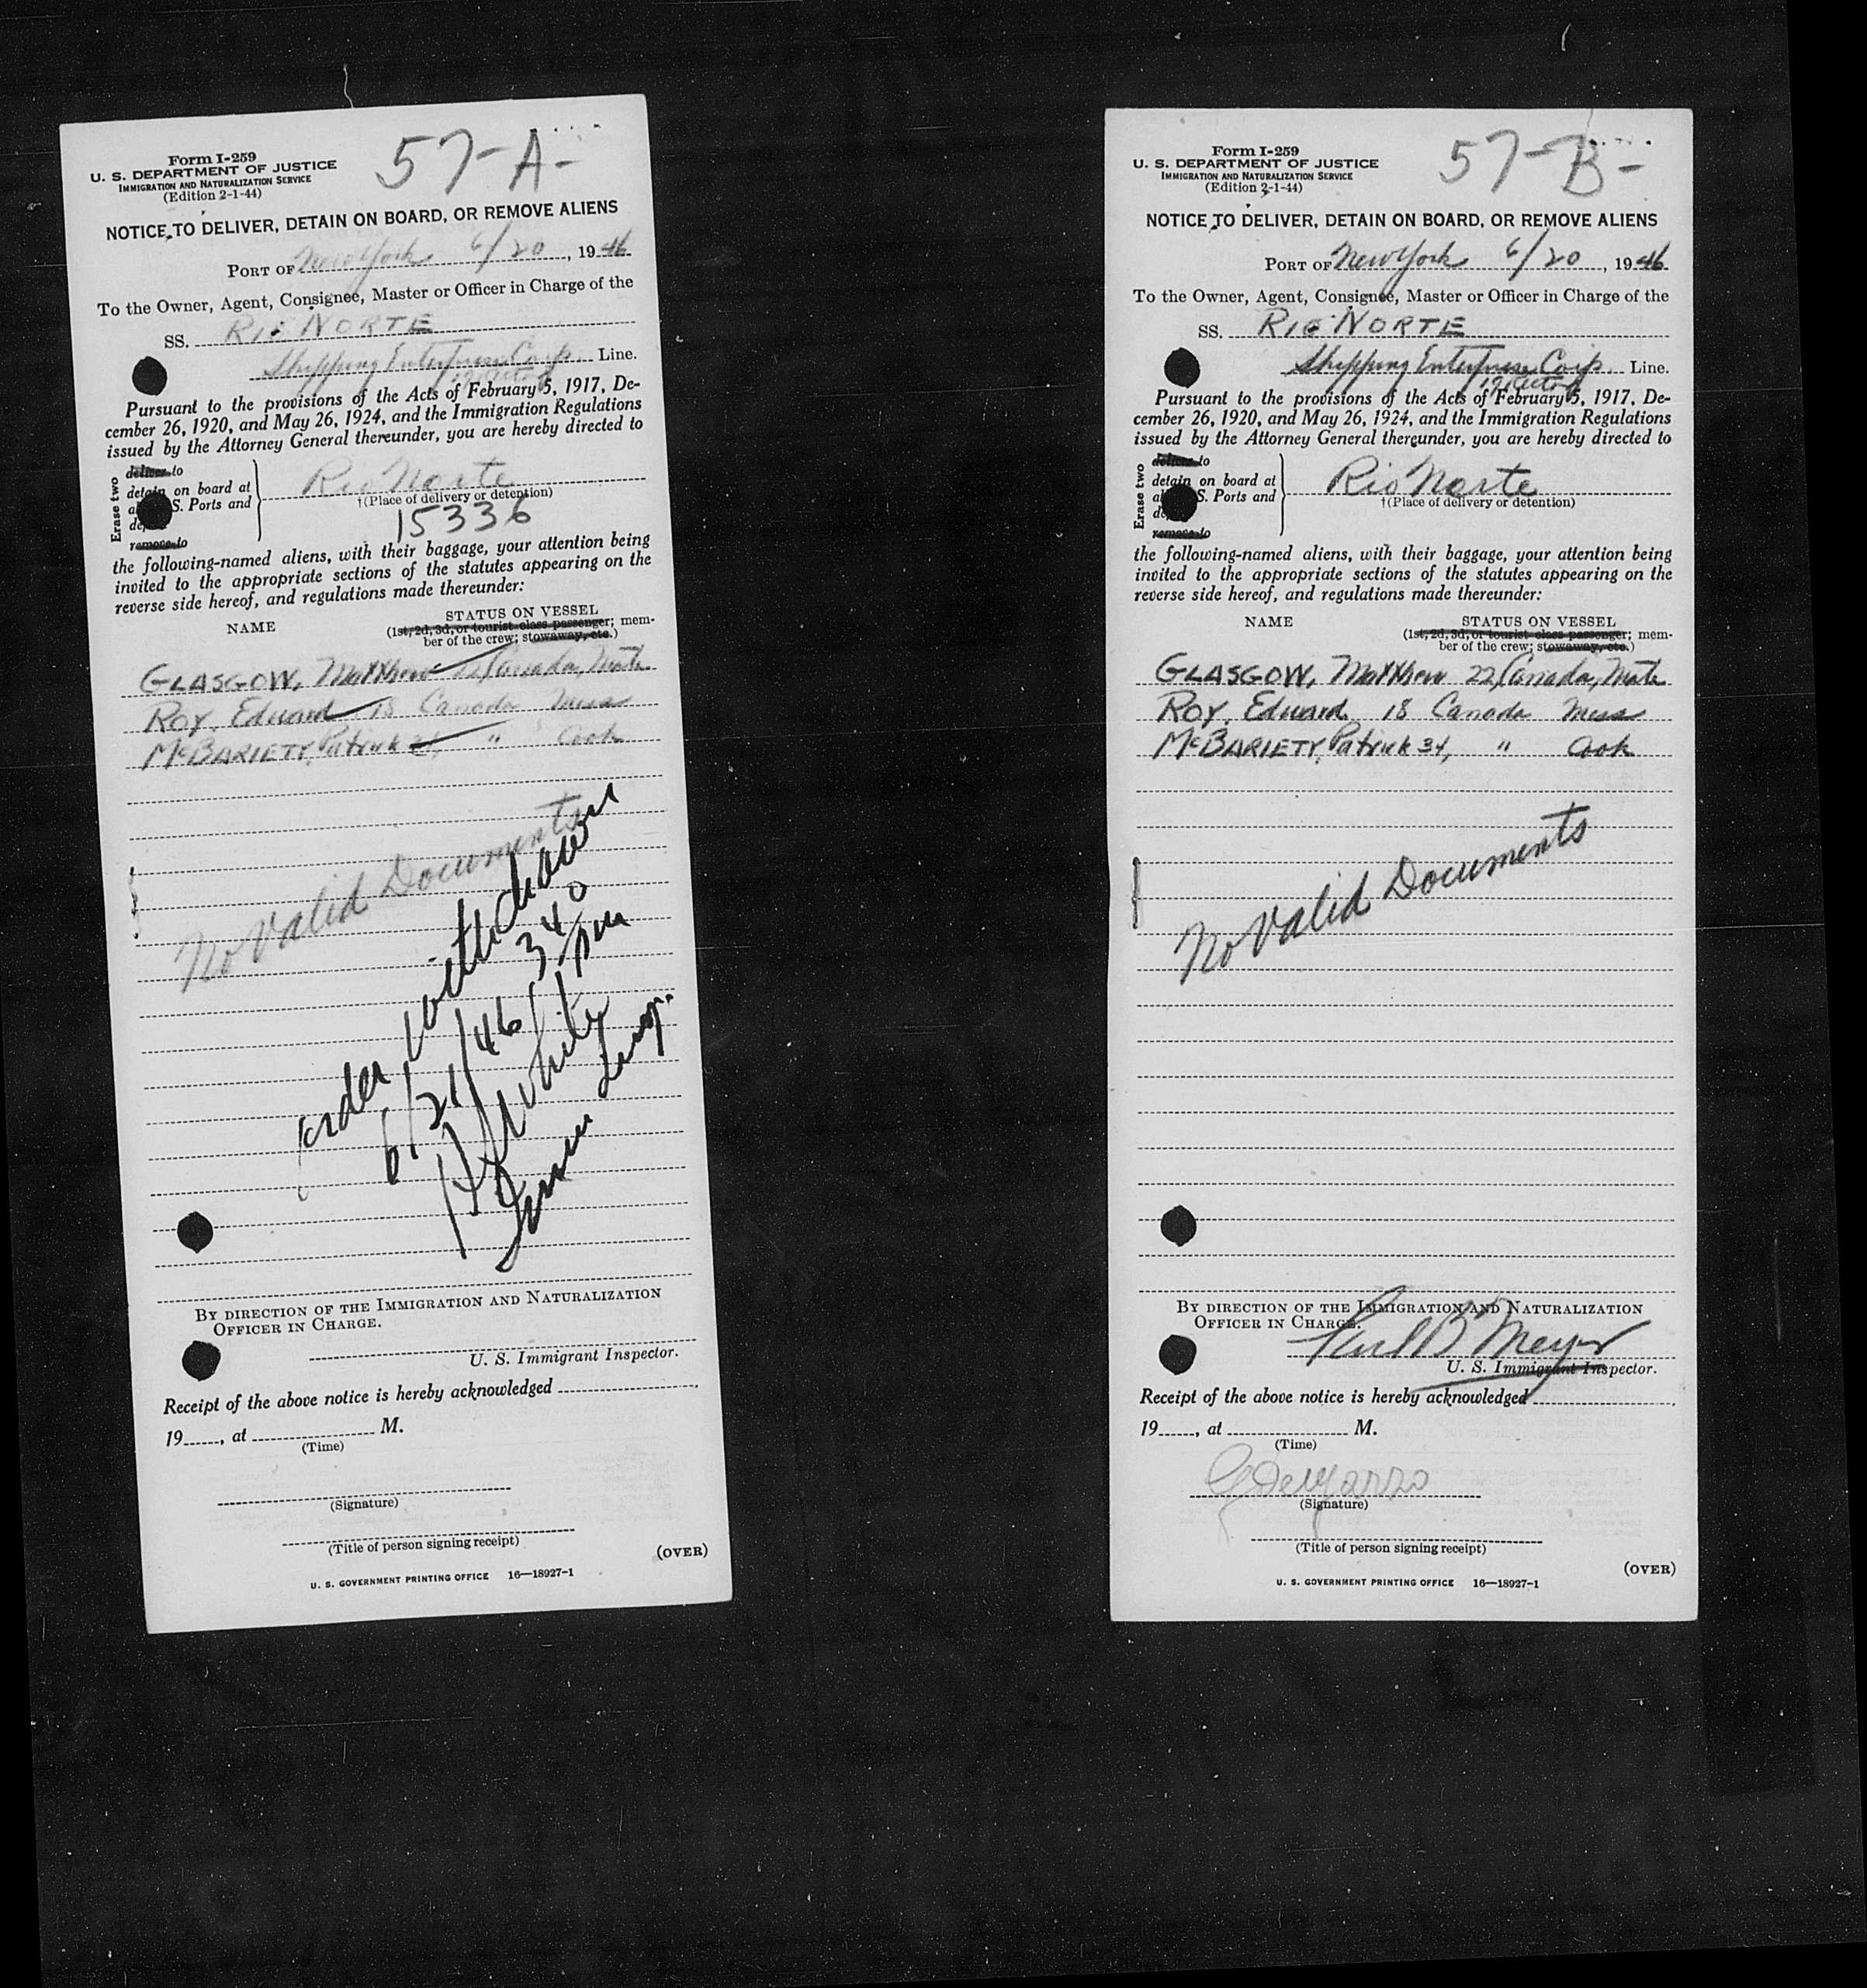 57-A-
Form I-259
U. S. DEPARTMENT OF JUSTICE
IMMIGRATION AND NATURALIZATION SERVICE
(Edition 2-1-44)
NOTICE TO DELIVER, DETAIN ON BOARD, OR REMOVE ALIENS
PORT OF New York 6/20, 1946
To the Owner, Agent, Consignee, Master or Officer in Charge of the
SS. RIO NORTE
Shipping Enterprise Corp. Line.
Pursuant to the provisions of the Acts of February 5, 1917, De-
cember 26, 1920, and May 26, 1924, and the Immigration Regulations
issued by the Attorney General thereunder, you are hereby directed to
Erase two
deliver to
detain on board at
S. Ports and
remove to
Rio Norte
†(Place of delivery or detention)
15336
the following-named aliens, with their baggage, your attention being
invited to the appropriate sections of the statutes appearing on the
reverse side hereof, and regulations made thereunder:
NAME STATUS ON VESSEL
(1st, 2d, 3d, or tourist class passenger; mem-
ber of the crew; stowaway, etc.)
GLASGOW, Matthew 22, Canada, Mate
ROY, Edward 18 Canada Mess
McBARIETY, Patrick 34, " Cook
No Valid Documents
order withdrawn
6/21/46 3 40 pm
White
Imm Insp.
BY DIRECTION OF THE IMMIGRATION AND NATURALIZATION
OFFICER IN CHARGE.
U. S. Immigrant Inspector.
Receipt of the above notice is hereby acknowledged
19, at M.
(Time)
(Signature)
(Title of person signing receipt)
(OVER)
U. S. GOVERNMENT PRINTING OFFICE 16—18927-1
57-B-
Form I-259
U. S. DEPARTMENT OF JUSTICE
IMMIGRATION AND NATURALIZATION SERVICE
(Edition 2-1-44)
NOTICE TO DELIVER, DETAIN ON BOARD, OR REMOVE ALIENS
PORT OF New York 6/20, 1946
To the Owner, Agent, Consignee, Master or Officer in Charge of the
SS. RIO NORTE
Shipping Enterprise Corp. Line.
Pursuant to the provisions of the Acts of February 5, 1917, De-
cember 26, 1920, and May 26, 1924, and the Immigration Regulations
issued by the Attorney General thereunder, you are hereby directed to
Erase two
deliver to
detain on board at
S. Ports and
remove to
Rio Norte
†(Place of delivery or detention)
the following-named aliens, with their baggage, your attention being
invited to the appropriate sections of the statutes appearing on the
reverse side hereof, and regulations made thereunder:
NAME STATUS ON VESSEL
(1st, 2d, 3d, or tourist class passenger; mem-
ber of the crew; stowaway, etc.)
GLASGOW, Matthew 22, Canada, Mate
ROY, Edward 18 Canada Mess
McBARIETY, Patrick 34, " Cook
No Valid Documents
BY DIRECTION OF THE IMMIGRATION AND NATURALIZATION
OFFICER IN CHARGE.
B Meyer
U. S. Immigrant Inspector.
Receipt of the above notice is hereby acknowledged
19, at M.
(Time)
(Signature)
(Title of person signing receipt)
(OVER)
U. S. GOVERNMENT PRINTING OFFICE 16—18927-1